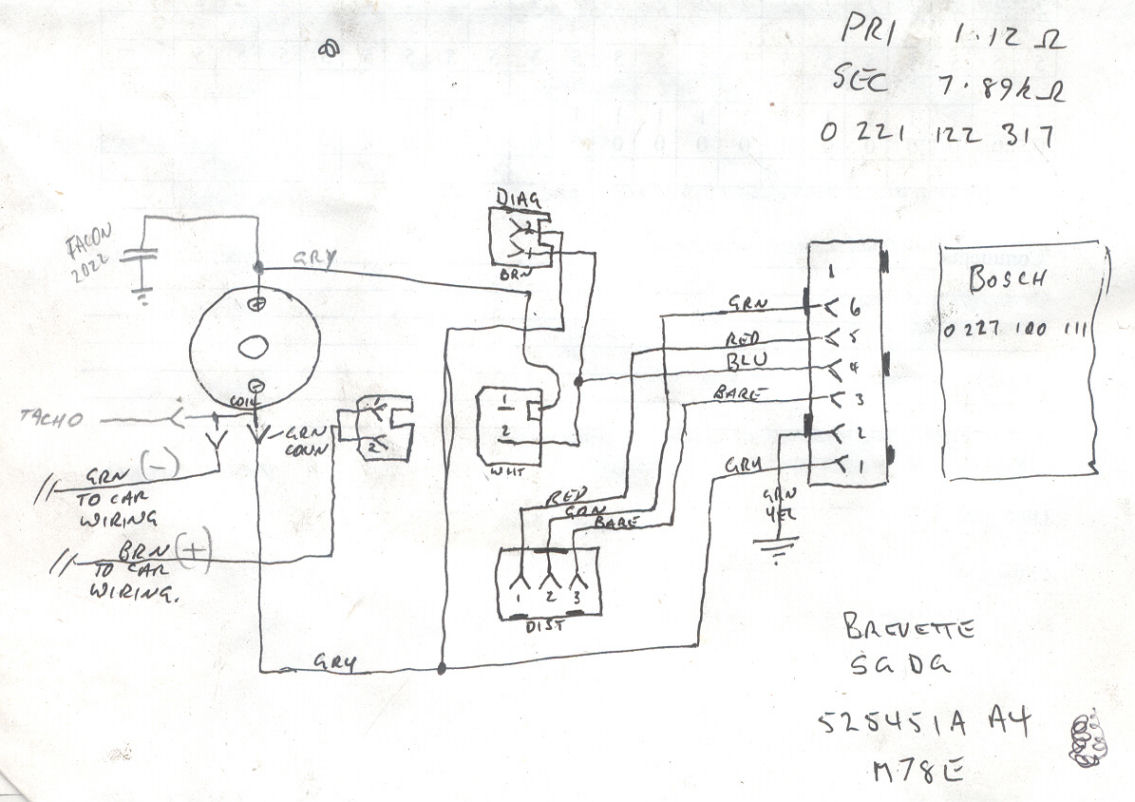 PRI 1.12 Ω
SEC 7.89kΩ
0 221 122 317
DIAG
2
1
BRN
FACON
2022
GRY
+
-
COIL
TACHO
GRN
CONN
1
2
GRN (-)
TO CAR
WIRING
BRN (+)
TO CAR
WIRING.
1
2
WHT
GRN
RED
BLU
BARE
GRY
GRN
YEL
1
6
5
4
3
2
1
BOSCH
0 227 100 111
RED
GRN
BARE
1 2 3
DIST
GRY
BREVETTE
SGDG
525451A A4
M78E